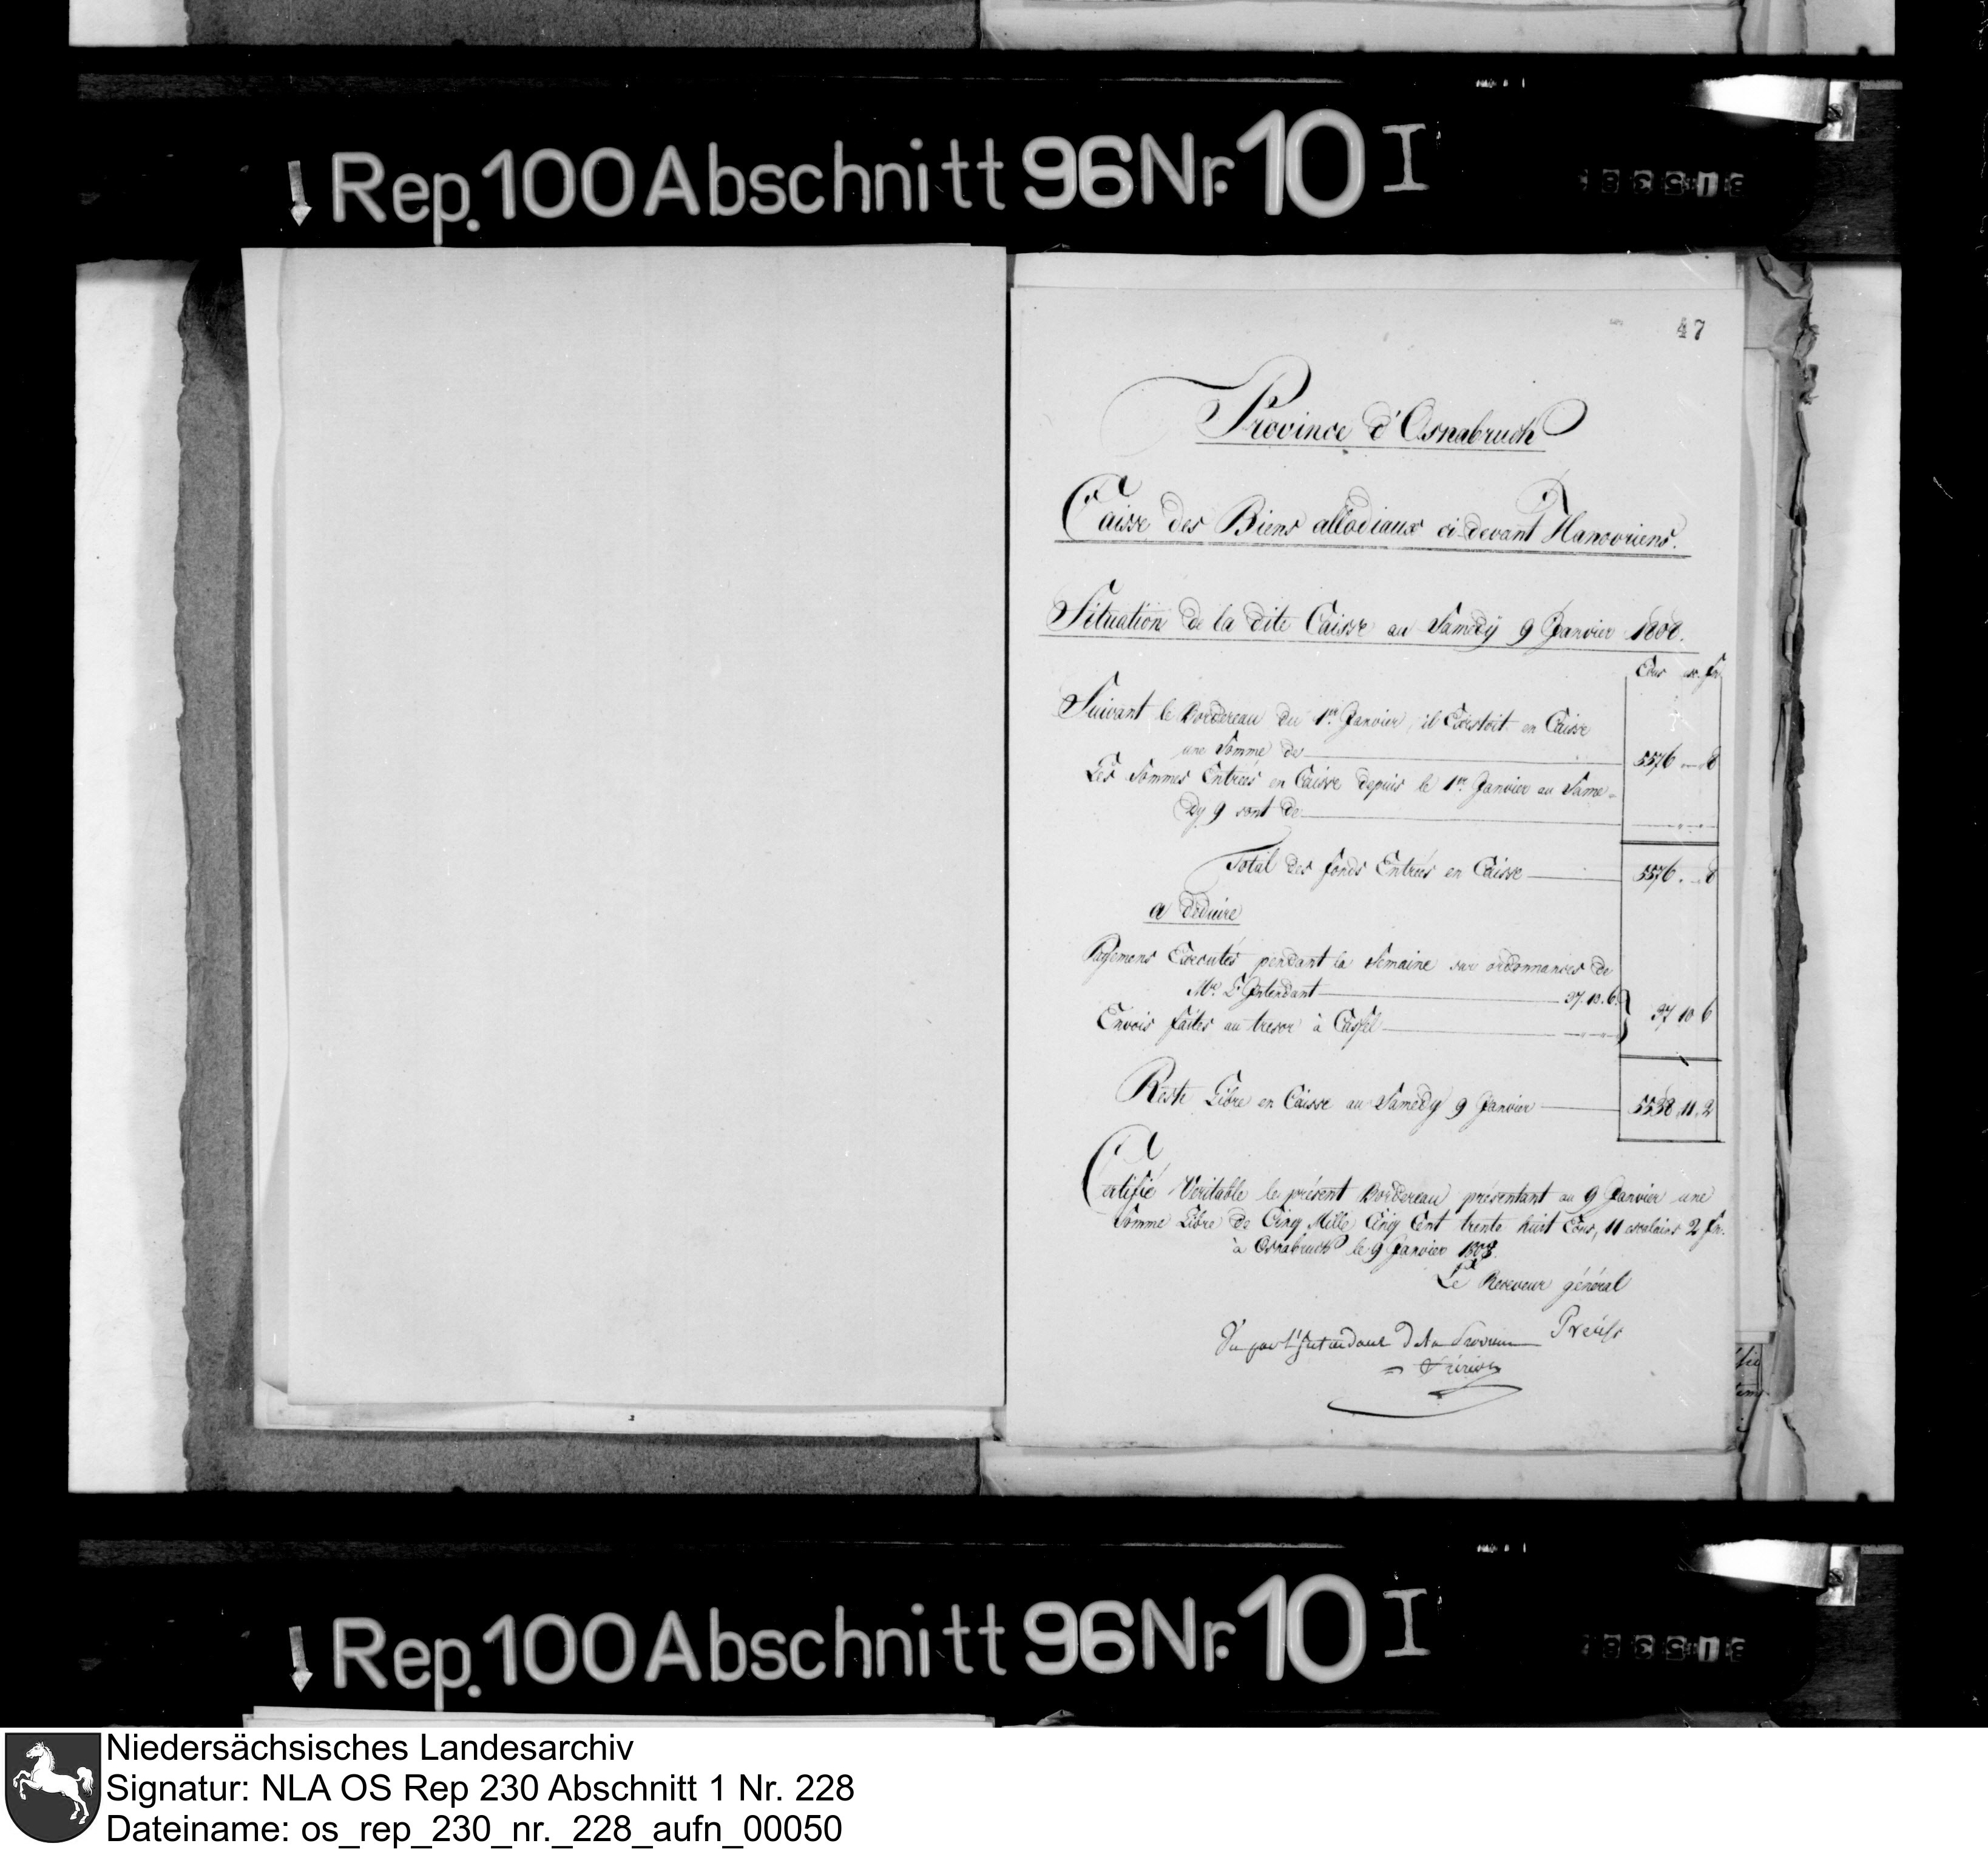 Rep. 100 Abschnitt 96 Nr. 10 I
47
Province d'Osnabruck
Caisse des Biens allodiaux ci-devant Hanovriens.
Situation de la dite Caisse au Samedÿ 9 Janvier 1808.
Ecus esc. fn.
Suivant le Bordereau du 1er. Janvier, il Existoit en Caisse
une Somme de 5576 .. 8
Les Sommes Entrées en Caisse depuis le 1er. Janvier au Same-
dy 9 sont de
Total des fonds Entrées en Caisse 5576 . .. 8
a déduire
Payemens Executés pendant la Semaine sur ordonnances de
Mr. L'Intendant 37. 10. 6.
Envois faites au tresor à Cassel
37 10 6
Reste Libre en Caisse au Samedy 9 Janvier 5538. 11. 2
Certifié Veritable le présent Bordereau présentant au 9 Janvier une
Somme Libre de Cinq Mille Cinq Cent trente huit Ecus, 11 escalins 2 fn.
à Osnabruck le 9 Janvier 1808.
Le Receveur général
Vu par l'Intendant de la Province
Rep. 100 Abschnitt 96 Nr. 10 I
Niedersächsisches Landesarchiv
Signatur: NLA OS Rep 230 Abschnitt 1 Nr. 228
Dateiname: os_rep_230_nr._228_aufn_00050